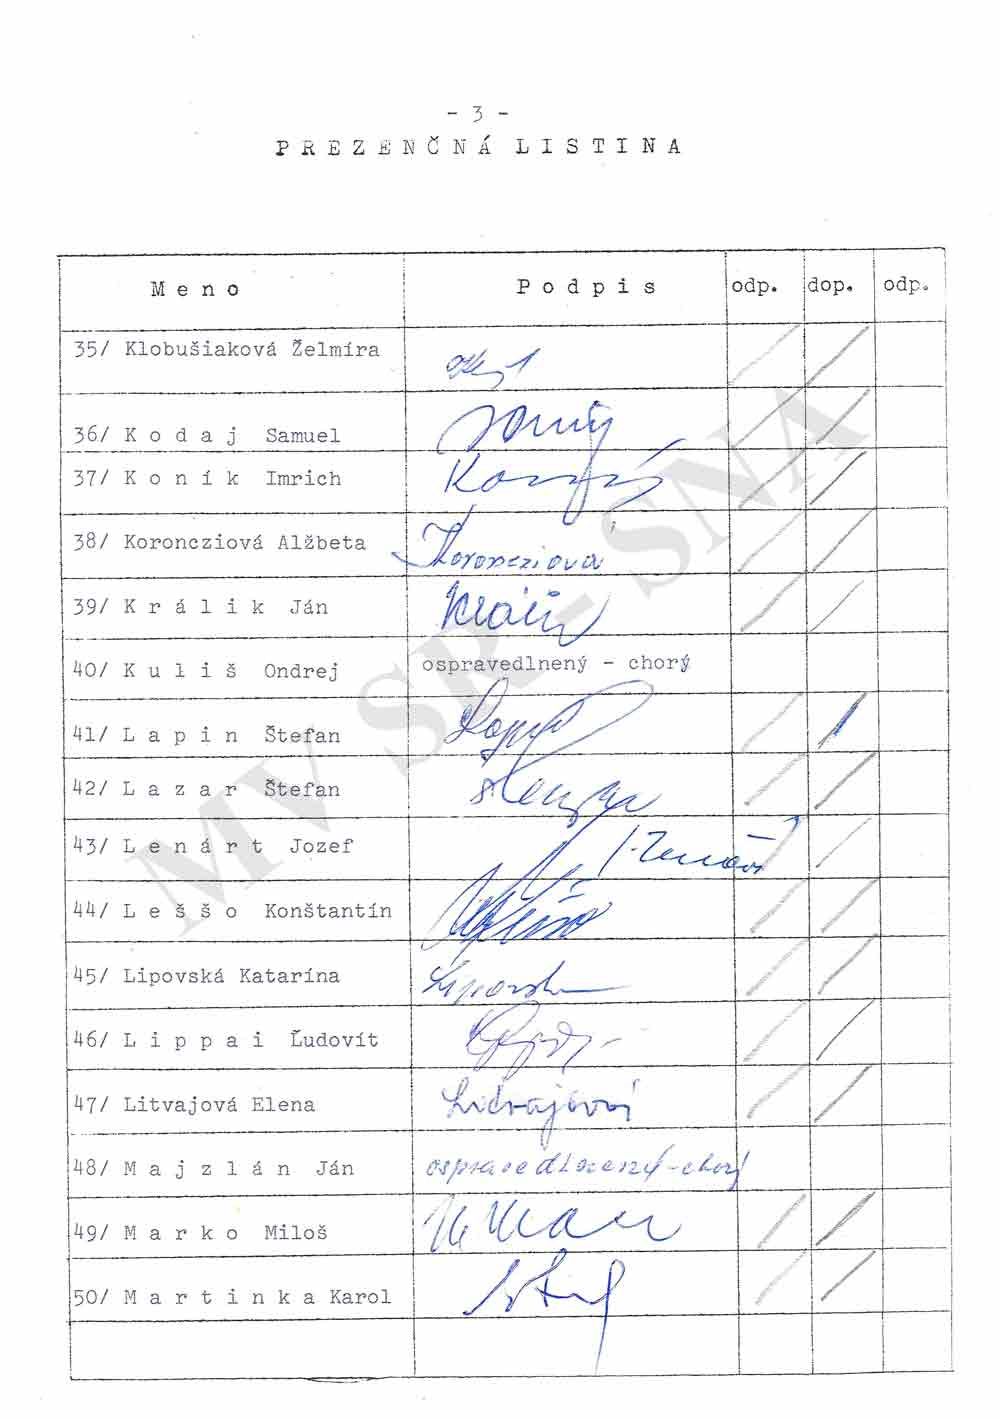 - 3 -
P R E Z E N Č N Á  L I S T I N A
M e n o  P o d p i s  odp.  dop.  odp.
35/ Klobušiaková Želmíra
36/ K o d a j  Samuel
37/ K o n í k  Imrich
38/ Koroncziová Alžbeta  Koroncziová
39/ K r á l i k  Ján  Králik
40/ K u l i š  Ondrej  ospravedlnený - chorý
41/ L a p i n  Štefan
42/ L a z a r  Štefan
43/ L e n á r t  Jozef
44/ L e š š o  Konštantín
45/ Lipovská Katarína  Lipovská
46/ L i p p a i  Ľudovít
47/ Litvajová Elena  Litvajová
48/ M a j z l á n  Ján  ospravedlnený - chorý
49/ M a r k o  Miloš
50/ M a r t i n k a  Karol
MV SR - SNA